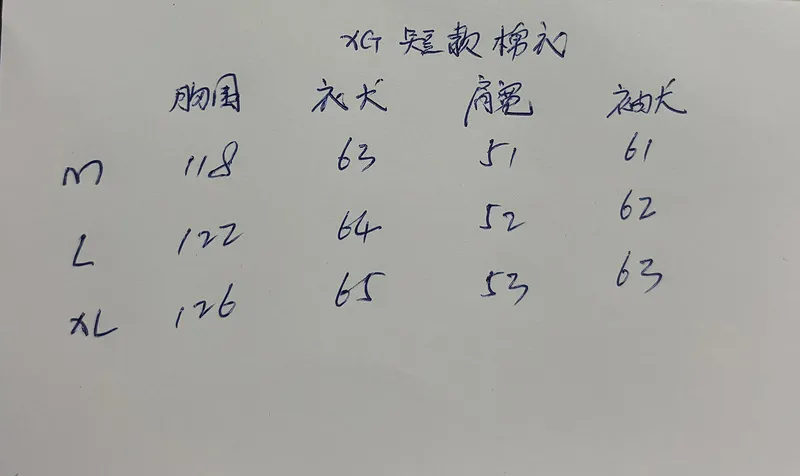 XG 短款棉衣
胸围 衣长 肩宽 袖长
M 118 63 51 61
L 122 64 52 62
XL 126 65 53 63